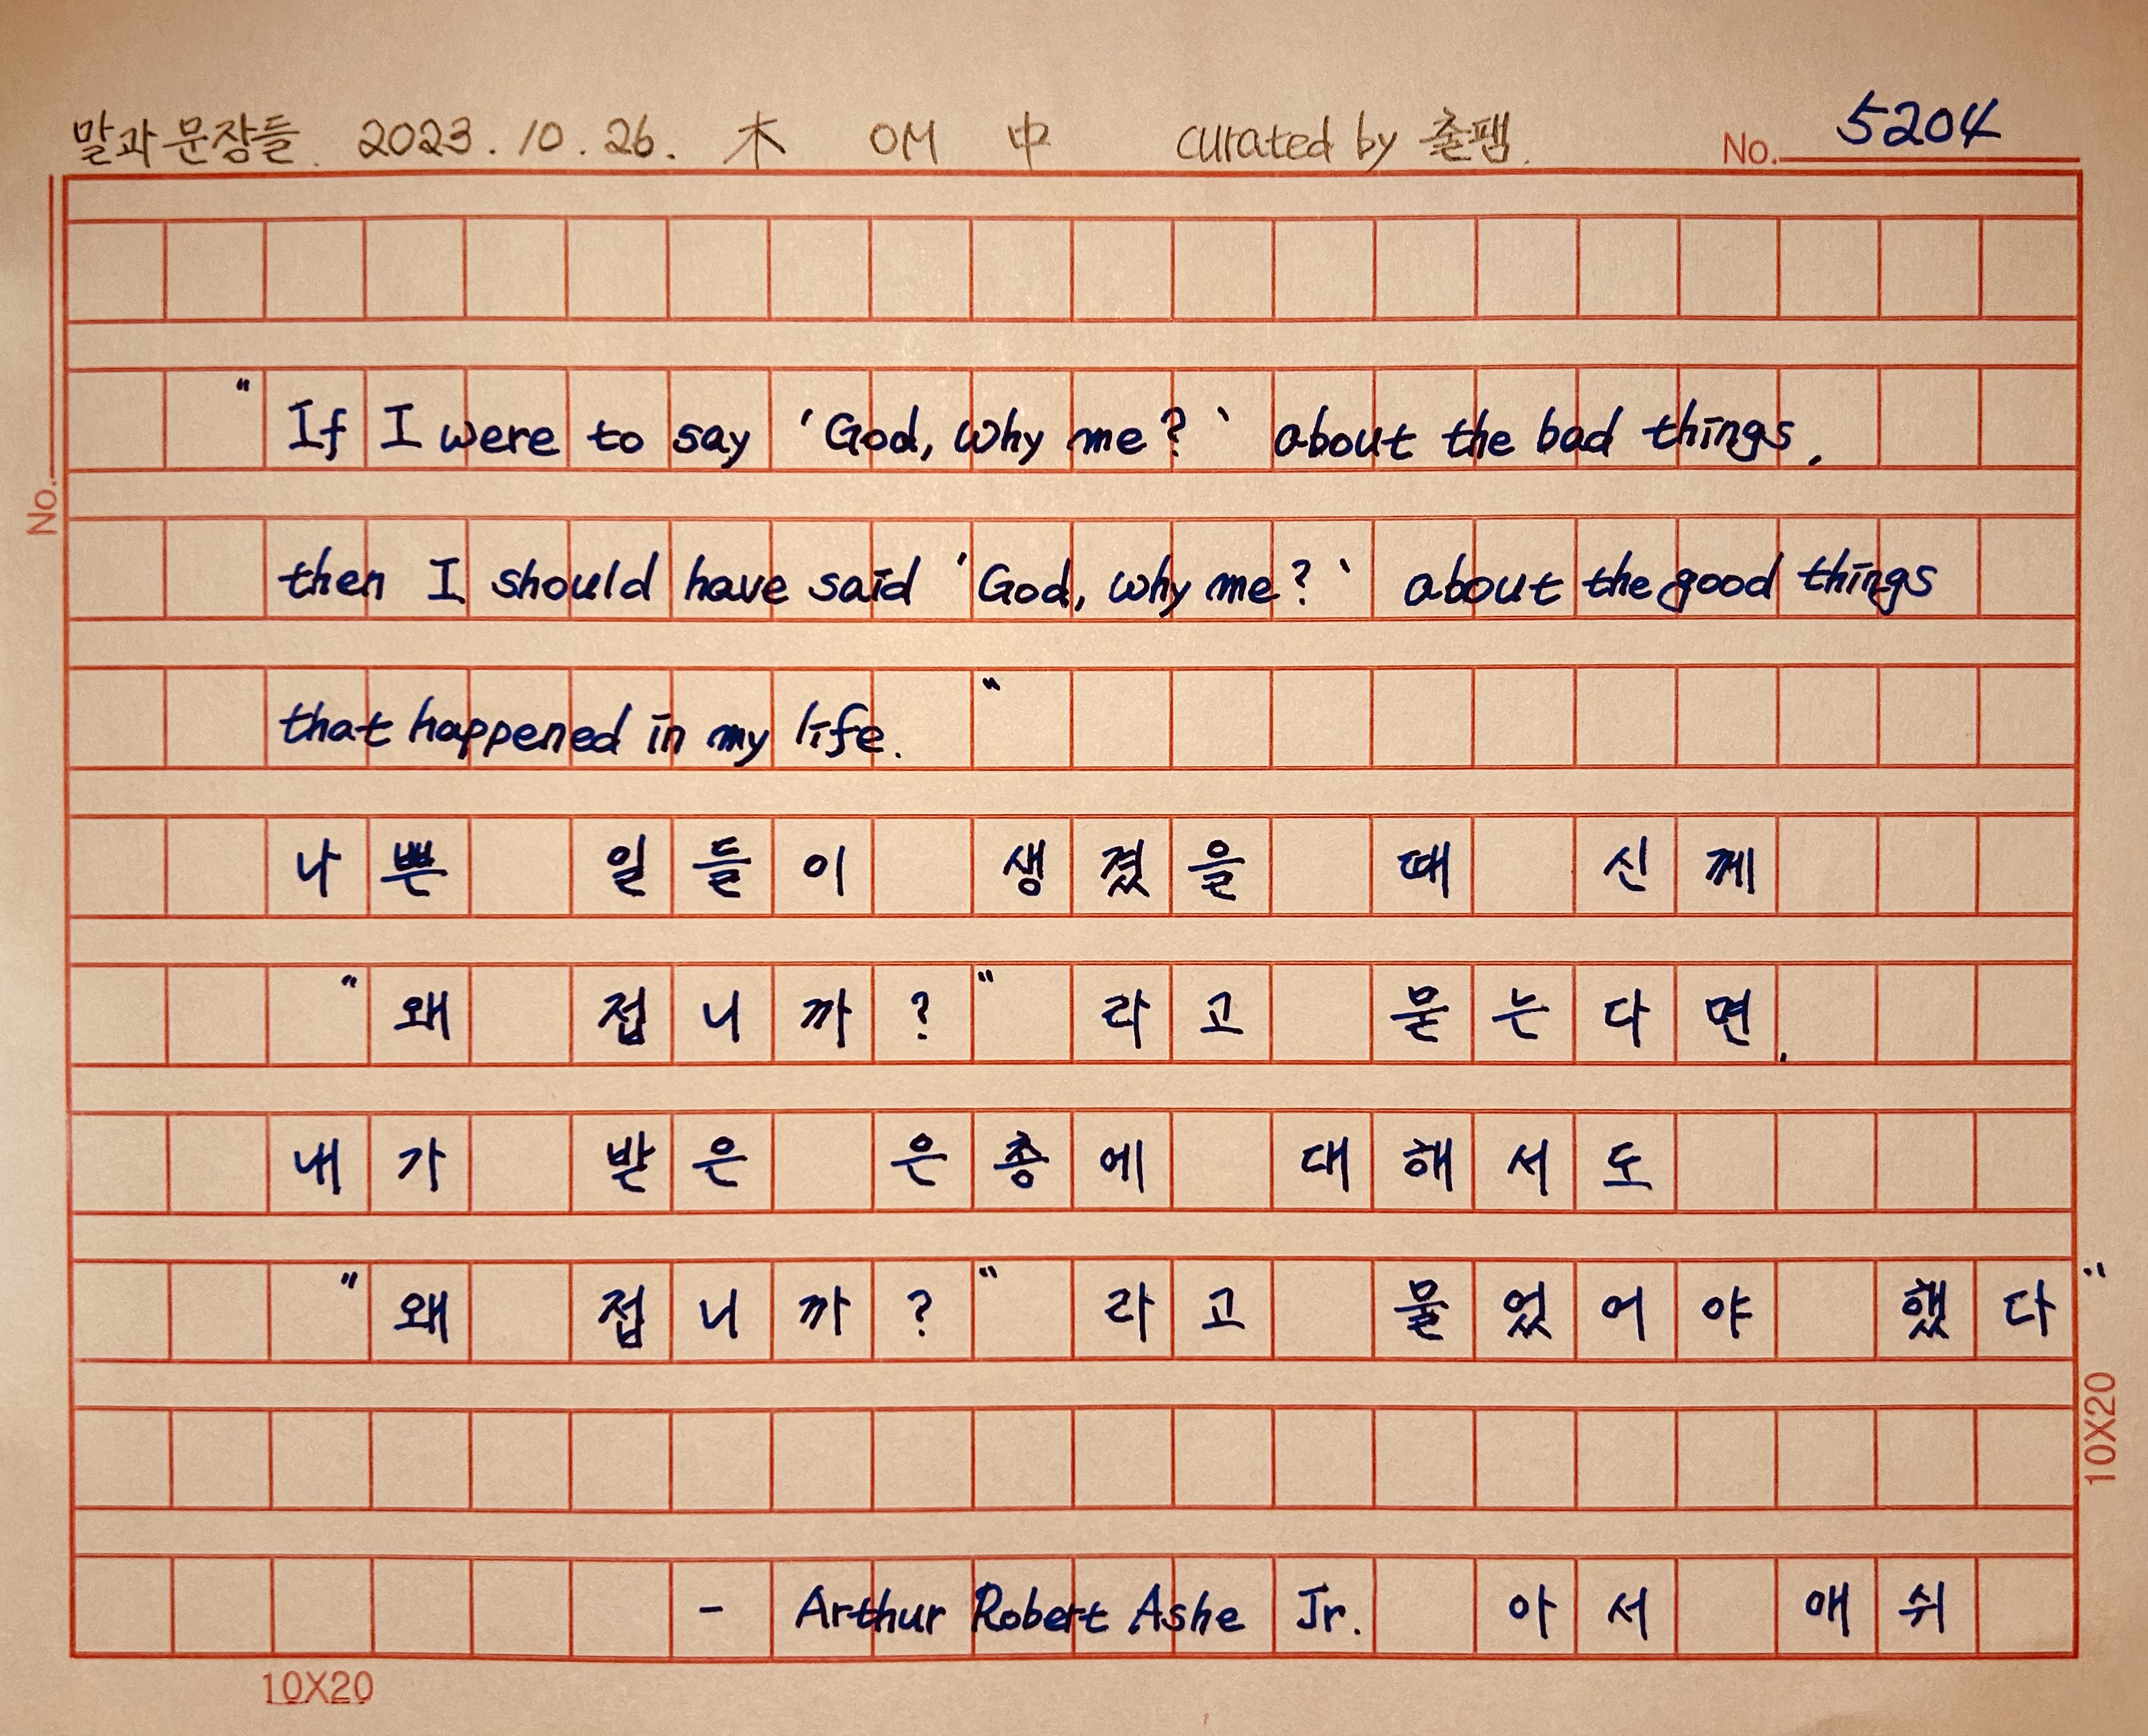 말과 문장들. 2023. 10. 26. 木 OM 中 curated by 출팸.
No. 5204
No.
"If I were to say 'God, why me?' about the bad things,
then I should have said 'God, why me?' about the good things
that happened in my life."
나쁜 일들이 생겼을 때 신께
"왜 접니까?" 라고 묻는다면,
내가 받은 은총에 대해서도
"왜 접니까?" 라고 물었어야 했다"
- Arthur Robert Ashe Jr. 아서 애쉬
10X20
10X20